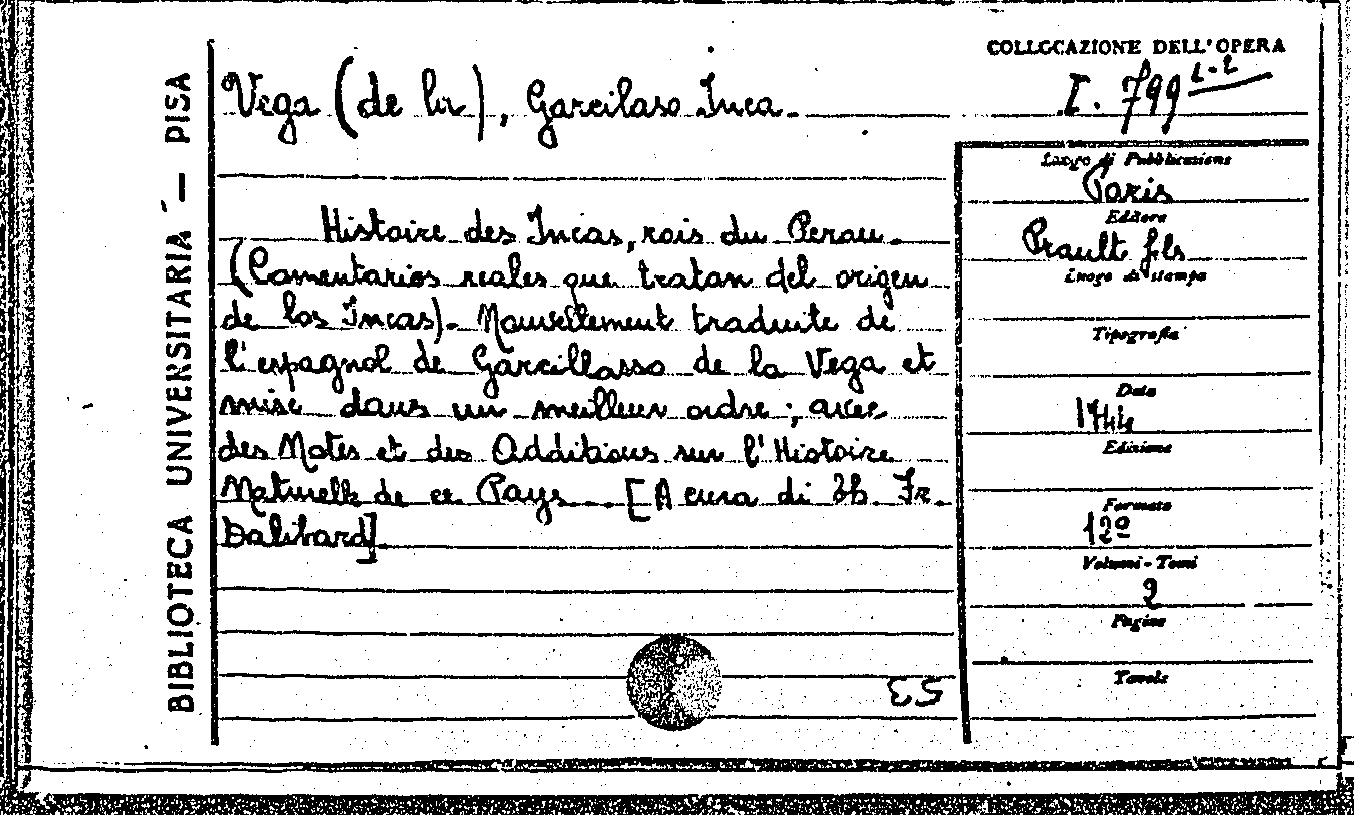 BIBLIOTECA UNIVERSITARIA — PISA
COLLOCAZIONE DELL'OPERA
Vega (de la), Garcilaso Inca.
I. 799 1-2
Histoire des Incas, rois du Perou.
(Comentarios reales que tratan del origen
de los Incas). Nouvellement traduite de
l'espagnol de Garcillasso de la Vega et
mise dans un meilleur ordre; avec
des Notes et des Additions sur l'Histoire
Naturelle de ce Pays. [A cura di Th. Fr.
Dalibard]
ES
Luogo di Pubblicazione
Paris
Editore
Prault fils
Luogo di stampa
Tipografia
Data
1744
Edizione
Formato
12º
Volumi - Tomi
2
Pagine
Tavole